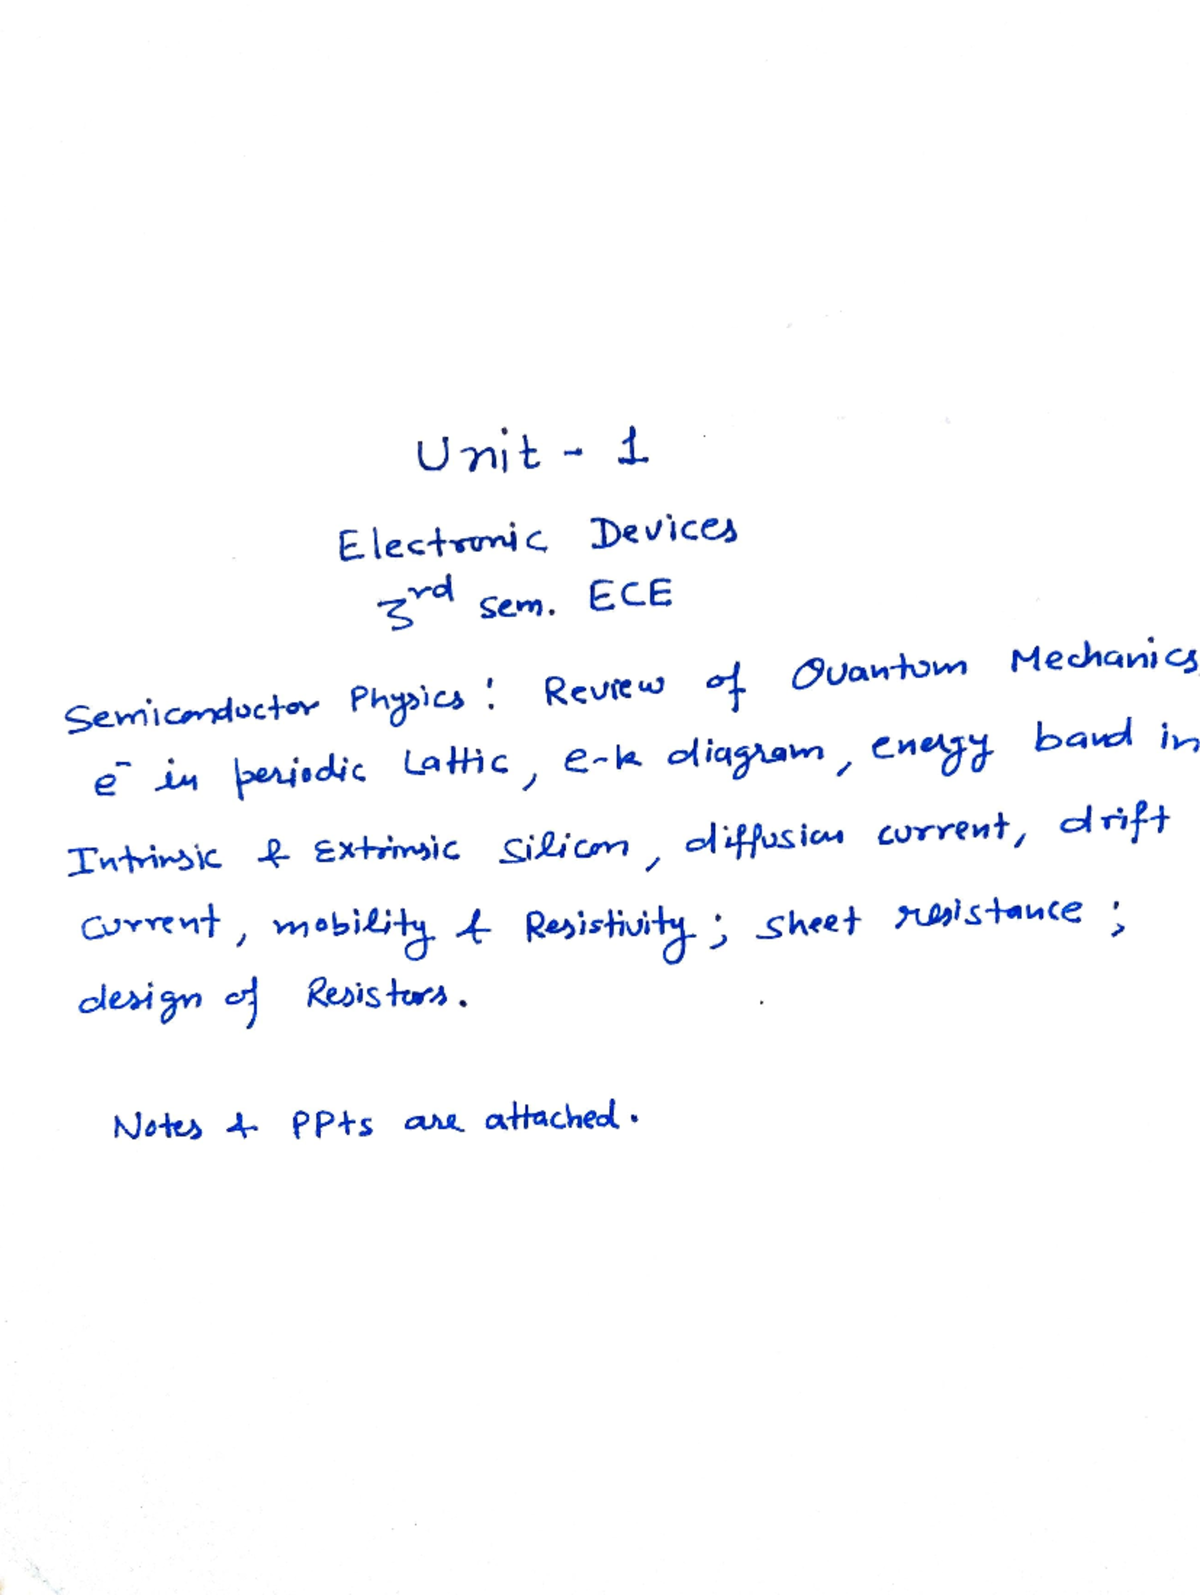 Unit - 1
Electronic Devices
3rd sem. ECE
Semiconductor Physics: Review of Quantum Mechanics
e⁻ in periodic Lattic, e-k diagram, energy band in
Intrinsic & Extrinsic silicon, diffusion current, drift
current, mobility & Resistivity; sheet resistance;
design of Resistors.
Notes & PPts are attached.